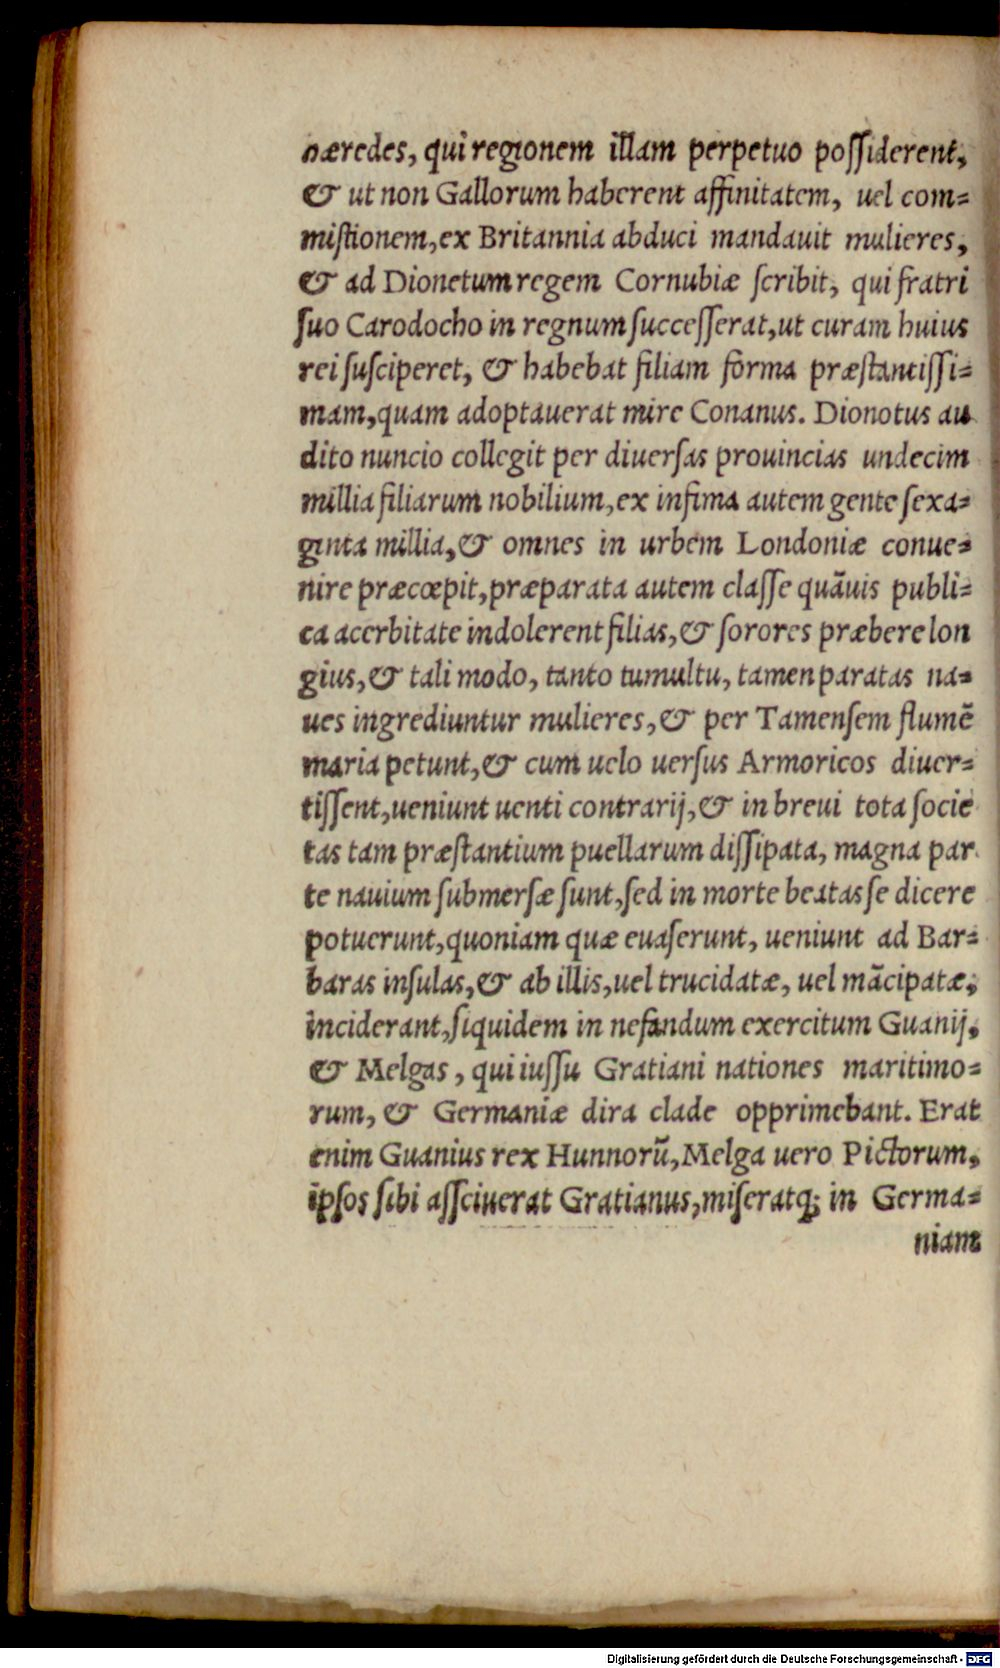 hæredes, qui regionem illam perpetuo poſſiderent,
& ut non Gallorum haberent affinitatem, uel com=
miſtionem, ex Britannia abduci mandauit mulieres,
& ad Dionetum regem Cornubiæ ſcribit, qui fratri
ſuo Carodocho in regnum ſucceſſerat, ut curam huius
rei ſuſciperet, & habebat filiam forma præſtantiſſi=
mam, quam adoptauerat mire Conanus. Dionotus au
dito nuncio collegit per diuerſas prouincias undecim
millia filiarum nobilium, ex infima autem gente ſexa=
ginta millia, & omnes in urbem Londoniæ conue=
nire præcœpit, præparata autem claſſe quāuis publi=
ca acerbitate indolerent filias, & ſorores præbere lon
gius, & tali modo, tanto tumultu, tamen paratas na=
ues ingrediuntur mulieres, & per Tamenſem flumē
maria petunt, & cum uelo uerſus Armoricos diuer=
tiſſent, ueniunt uenti contrarij, & in breui tota ſocie
tas tam præſtantium puellarum diſſipata, magna par
te nauium ſubmerſæ ſunt, ſed in morte beatas ſe dicere
potuerunt, quoniam quæ euaſerunt, ueniunt ad Bar=
baras inſulas, & ab illis, uel trucidatæ, uel mācipatæ,
inciderant, ſiquidem in nefandum exercitum Guanij,
& Melgas, qui iuſſu Gratiani nationes maritimo=
rum, & Germaniæ dira clade opprimebant. Erat
enim Guanius rex Hunnorū, Melga uero Pictorum,
ipſos ſibi aſſciuerat Gratianus, miſeratq; in Germa=
niam
Digitalisierung gefördert durch die Deutsche Forschungsgemeinschaft - DFG